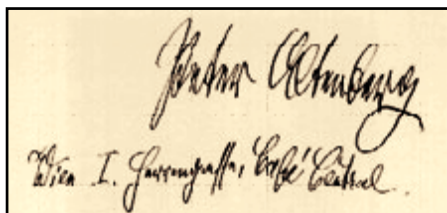 Peter Altenberg
Wien I. Herrengasse, 'Café' Central.